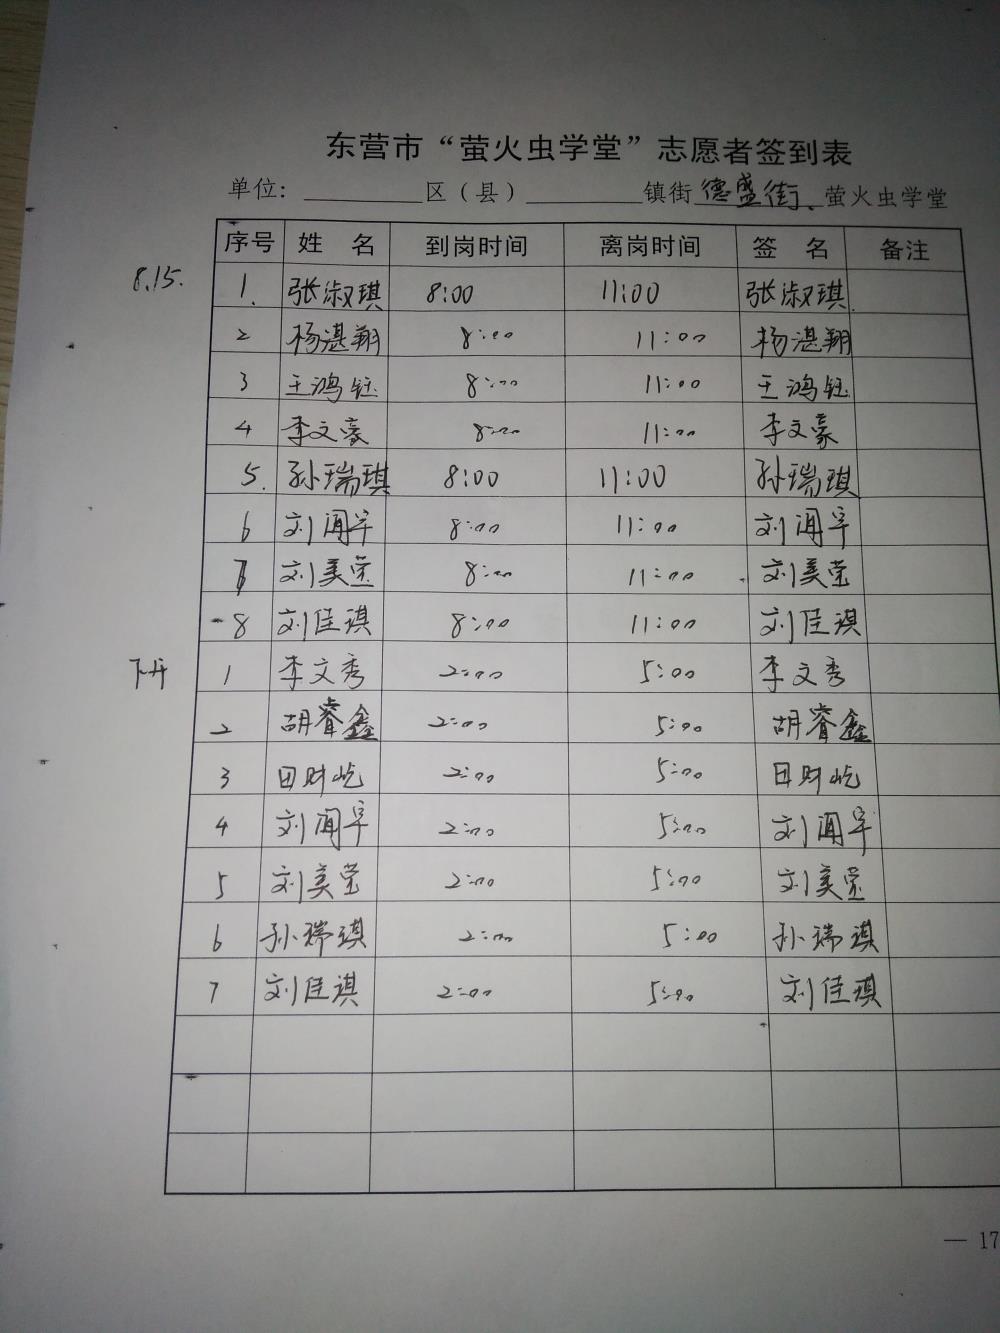 东营市“萤火虫学堂”志愿者签到表
单位：________区（县）________镇街 德盛街、萤火虫学堂
序号 姓 名 到岗时间 离岗时间 签 名 备注
8.15.
1. 张淑琪 8:00 11:00 张淑琪.
2 杨湛翔 8:00 11:00 杨湛翔
3 王鸿钰 8:00 11:00 王鸿钰
4 李文豪 8:00 11:00 李文豪
5. 孙瑞琪 8:00 11:00 孙瑞琪
6 刘闻宇 8:00 11:00 刘闻宇
7 刘美莹 8:00 11:00 刘美莹
8 刘佳琪 8:00 11:00 刘佳琪
下午
1 李文秀 2:00 5:00 李文秀
2 胡睿鑫 2:00 5:00 胡睿鑫
3 田财屹 2:00 5:00 田财屹
4 刘闻宇 2:00 5:00 刘闻宇
5 刘美莹 2:00 5:00 刘美莹
6 孙瑞琪 2:00 5:00 孙瑞琪
7 刘佳琪 2:00 5:00 刘佳琪
— 17